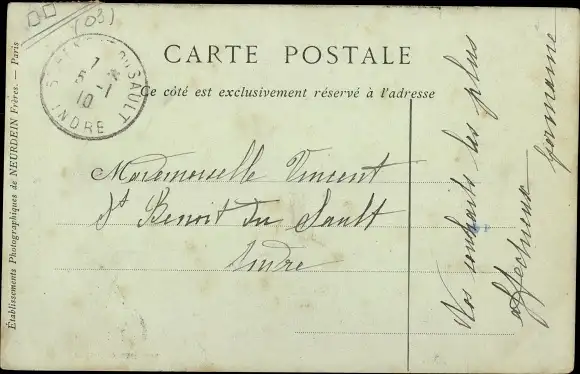 (03)
CARTE POSTALE
Ce côté est exclusivement réservé à l'adresse
ST BENOIT DU SAULT
5 -1
10
INDRE
Mademoiselle Vincent
St Benoit du Sault
Indre
Nos souhaits les plus
affectueux
Germaine
Établissements Photographiques de NEURDEIN Frères. — Paris